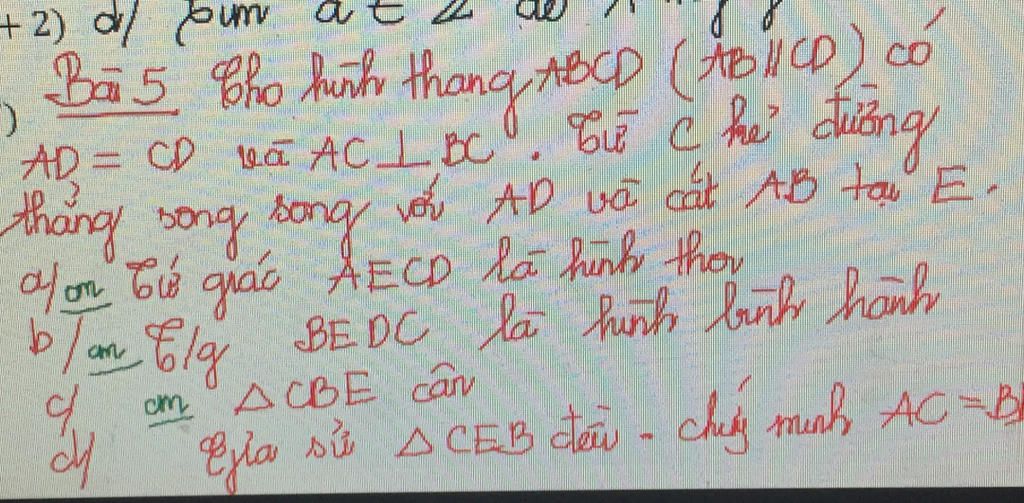 +2) d/ tìm a ∈ Z để
Bài 5 Cho hình thang ABCD (AB//CD) có
)
AD = CD và AC ⊥ BC. Từ C kẻ đường
thẳng song song với AD và cắt AB tại E.
a/ cm Tứ giác AECD là hình thoi
b/ cm T/g BEDC là hình bình hành
c/ cm △CBE cân
d/ Giả sử △CEB đều - chứng minh AC = B